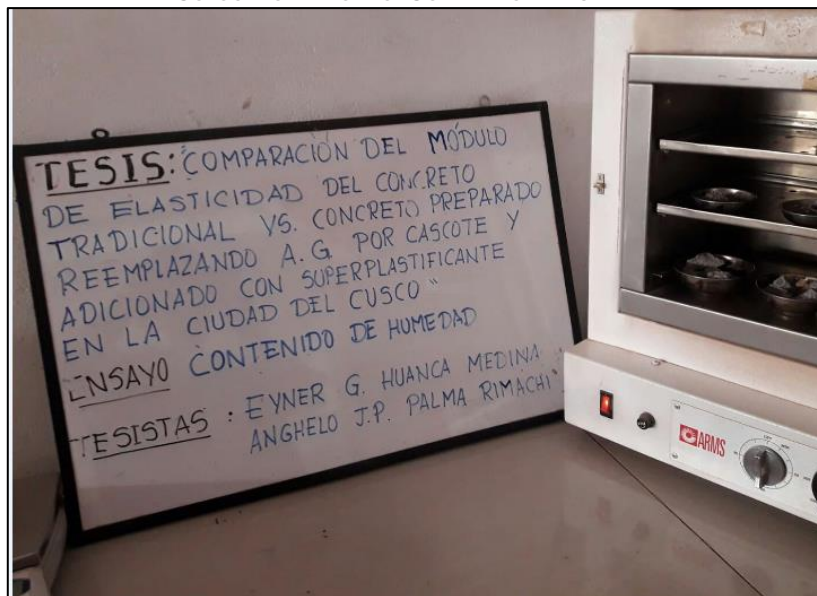 TESIS: "COMPARACIÓN DEL MÓDULO
DE ELASTICIDAD DEL CONCRETO
TRADICIONAL VS. CONCRETO PREPARADO
REEMPLAZANDO A.G. POR CASCOTE Y
ADICIONADO CON SUPERPLASTIFICANTE
EN LA CIUDAD DEL CUSCO"
ENSAYO CONTENIDO DE HUMEDAD
TESISTAS : EYNER G. HUANCA MEDINA
ANGHELO J.P. PALMA RIMACHI
ARMS